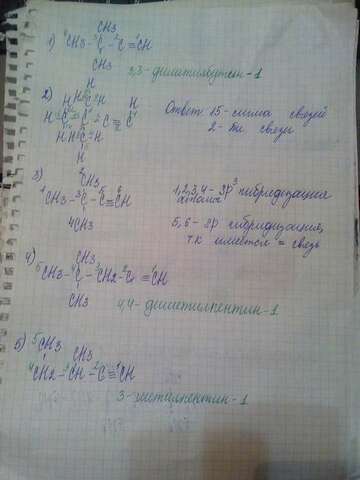 CH3
1) ⁴CH3 - ³C - ²C ≡ ¹CH
CH3
3,3-диметилбутин-1
H
2) H H C H H
Ответ: 15-сигма связей
H C C C ≡ C
2-пи связи
H C H
H
3) CH3
¹CH3 - ³C - ⁵C ≡ ⁶CH
1,2,3,4 - sp³ гибридизация
атома
4CH3
5,6 - sp гибридизация,
т.к имеется ≡ связь
4) CH3
⁵CH3 - ⁴C - ³CH2 - ²C ≡ ¹CH
CH3
4,4-диметилпентин-1
5) ⁵CH3
CH3
⁴CH2 - ³CH - ²C ≡ ¹CH
3-метилпентин-1